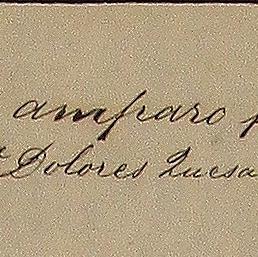 amparo p
Dolores Quesa